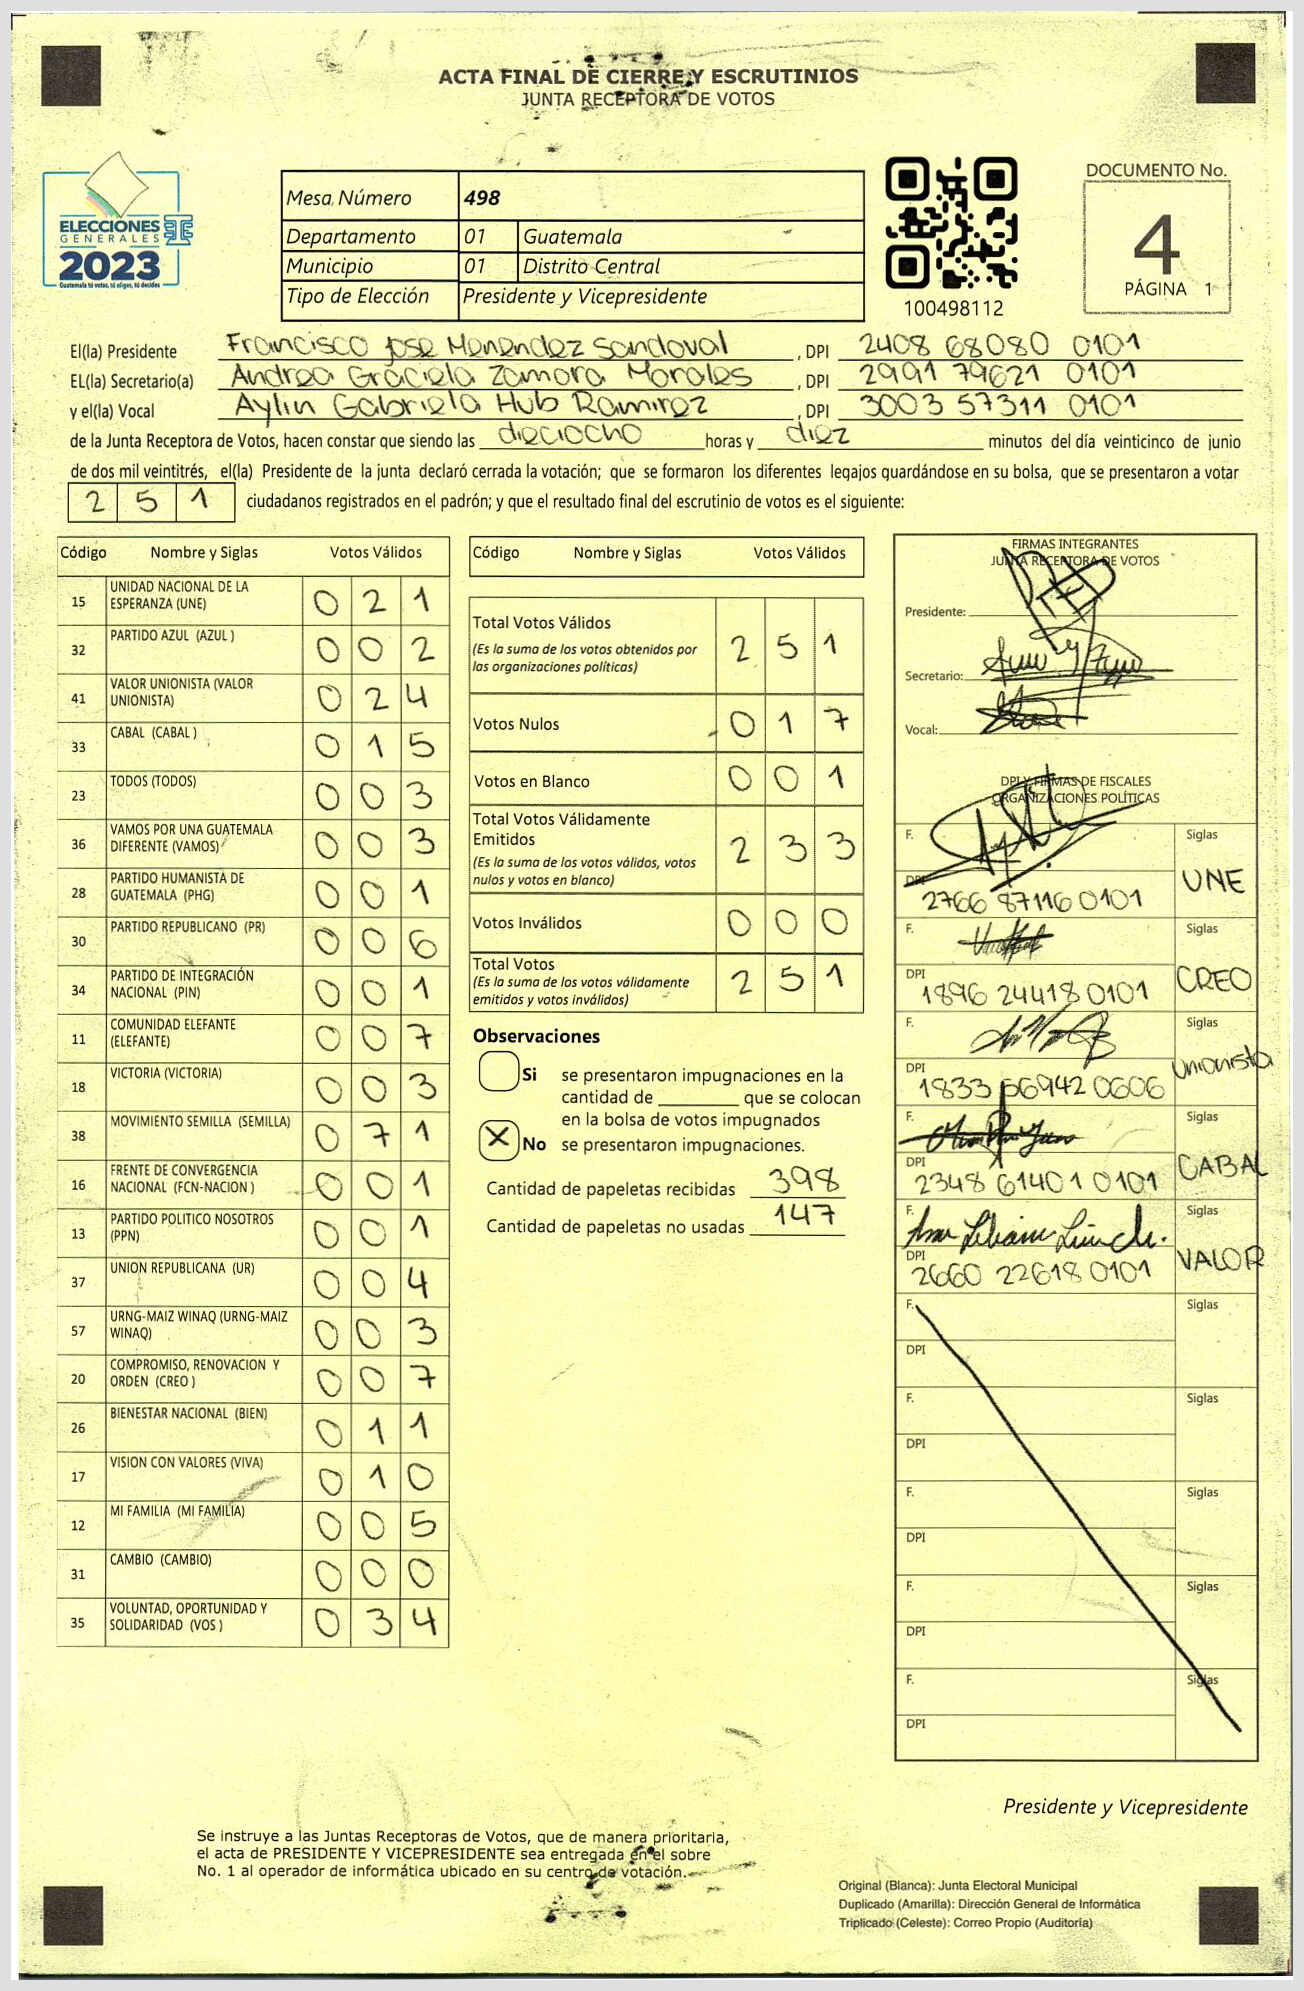 ACTA FINAL DE CIERRE Y ESCRUTINIOS
JUNTA RECEPTORA DE VOTOS
ELECCIONES
GENERALES
2023
Guatemala tú votas, tú eliges, tú decides
Mesa Número 498
Departamento 01 Guatemala
Municipio 01 Distrito Central
Tipo de Elección Presidente y Vicepresidente
100498112
DOCUMENTO No.
4
PÁGINA 1
El(la) Presidente Francisco Jose Menendez Sandoval , DPI 2408 68080 0101
EL(la) Secretario(a) Andrea Graciela Zamora Morales , DPI 2991 79621 0101
y el(la) Vocal Aylin Gabriela Hub Ramirez , DPI 3003 57311 0101
de la Junta Receptora de Votos, hacen constar que siendo las dieciocho horas y diez minutos del día veinticinco de junio
de dos mil veintitrés, el(la) Presidente de la junta declaró cerrada la votación; que se formaron los diferentes legajos guardándose en su bolsa, que se presentaron a votar
2 5 1 ciudadanos registrados en el padrón; y que el resultado final del escrutinio de votos es el siguiente:
Código Nombre y Siglas Votos Válidos
15 UNIDAD NACIONAL DE LA ESPERANZA (UNE) 0 2 1
32 PARTIDO AZUL (AZUL ) 0 0 2
41 VALOR UNIONISTA (VALOR UNIONISTA) 0 2 4
33 CABAL (CABAL ) 0 1 5
23 TODOS (TODOS) 0 0 3
36 VAMOS POR UNA GUATEMALA DIFERENTE (VAMOS) 0 0 3
28 PARTIDO HUMANISTA DE GUATEMALA (PHG) 0 0 1
30 PARTIDO REPUBLICANO (PR) 0 0 6
34 PARTIDO DE INTEGRACIÓN NACIONAL (PIN) 0 0 1
11 COMUNIDAD ELEFANTE (ELEFANTE) 0 0 7
18 VICTORIA (VICTORIA) 0 0 3
38 MOVIMIENTO SEMILLA (SEMILLA) 0 7 1
16 FRENTE DE CONVERGENCIA NACIONAL (FCN-NACION ) 0 0 1
13 PARTIDO POLITICO NOSOTROS (PPN) 0 0 1
37 UNION REPUBLICANA (UR) 0 0 4
57 URNG-MAIZ WINAQ (URNG-MAIZ WINAQ) 0 0 3
20 COMPROMISO, RENOVACION Y ORDEN (CREO ) 0 0 7
26 BIENESTAR NACIONAL (BIEN) 0 1 1
17 VISION CON VALORES (VIVA) 0 1 0
12 MI FAMILIA (MI FAMILIA) 0 0 5
31 CAMBIO (CAMBIO) 0 0 0
35 VOLUNTAD, OPORTUNIDAD Y SOLIDARIDAD (VOS ) 0 3 4
Código Nombre y Siglas Votos Válidos
Total Votos Válidos 2 5 1
(Es la suma de los votos obtenidos por
las organizaciones políticas)
Votos Nulos 0 1 7
Votos en Blanco 0 0 1
Total Votos Válidamente
Emitidos 2 3 3
(Es la suma de los votos válidos, votos
nulos y votos en blanco)
Votos Inválidos 0 0 0
Total Votos 2 5 1
(Es la suma de los votos válidamente
emitidos y votos inválidos)
Observaciones
Si se presentaron impugnaciones en la
cantidad de ________ que se colocan
en la bolsa de votos impugnados
X No se presentaron impugnaciones.
Cantidad de papeletas recibidas 398
Cantidad de papeletas no usadas 147
FIRMAS INTEGRANTES
JUNTA RECEPTORA DE VOTOS
Presidente:
Secretario:
Vocal:
DPI Y FIRMAS DE FISCALES
ORGANIZACIONES POLÍTICAS
F. Siglas
DPI 2766 87116 0101 UNE
F. Siglas
DPI 1896 24418 0101 CREO
F. Siglas
DPI 1833 56942 0606 Unionista
F. Siglas
DPI 2348 61401 0101 CABAL
F. Siglas
DPI 2660 22618 0101 VALOR
F. Siglas
DPI
F. Siglas
DPI
F. Siglas
DPI
F. Siglas
DPI
F. Siglas
DPI
Presidente y Vicepresidente
Se instruye a las Juntas Receptoras de Votos, que de manera prioritaria,
el acta de PRESIDENTE Y VICEPRESIDENTE sea entregada en el sobre
No. 1 al operador de informática ubicado en su centro de votación.
Original (Blanca): Junta Electoral Municipal
Duplicado (Amarilla): Dirección General de Informática
Triplicado (Celeste): Correo Propio (Auditoría)